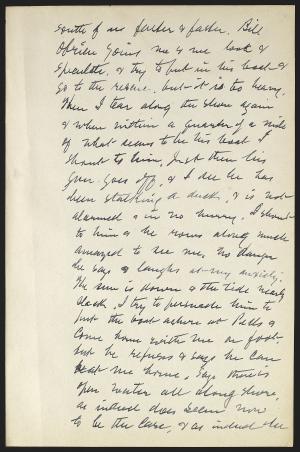 south of us farther & farther. Bill
O'Brien joins me & we look &
speculate, & try to put in his boat &
go to the rescue, but it is too heavy.
Then I tear along the shore again
& when within a quarter of a mile
of what seems to be his boat I
shout to him. Just then his
gun goes off, & I see he has
been stalking a duck, & is not
alarmed & in no hurry. I shout
to him & he rows along much
amazed to see me, no danger
he says & laughs at my anxiety.
The sun is down & the tide nearly
slack. I try to persuade him to
put the boat ashore at Pells &
come home with me on foot—
but he refuses & says he can
beat me home, says there is
open water all along shore,
as indeed does seem now
to be the case, & as indeed the